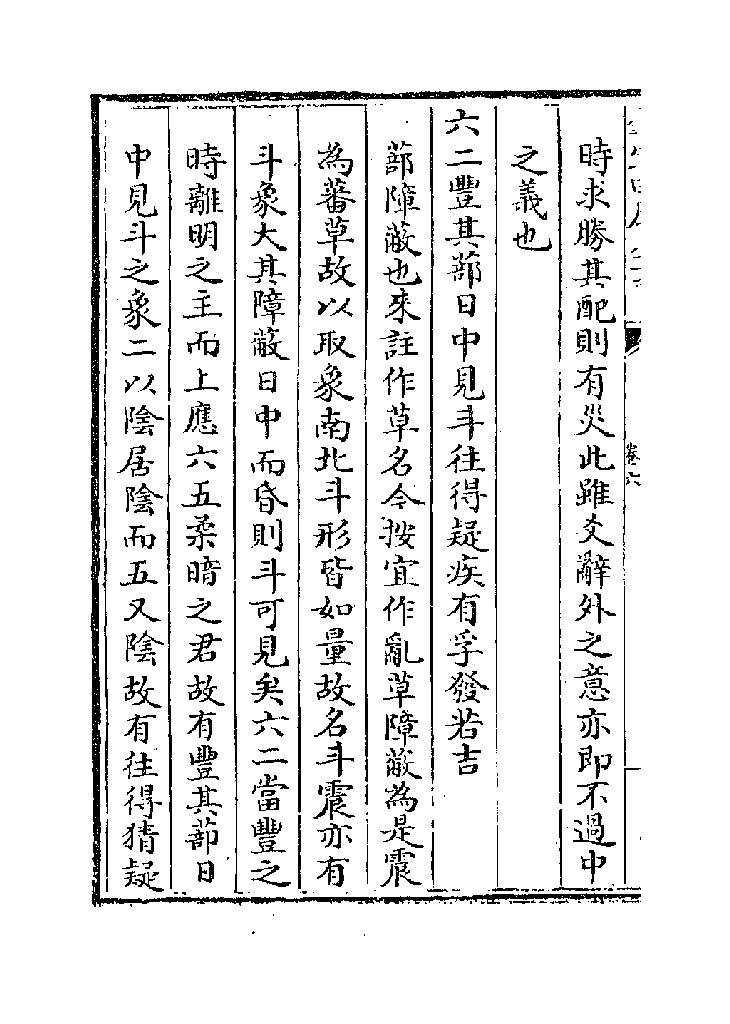 時求勝其配則有災此雖爻辭外之意亦即不過中
之義也
六二豐其蔀日中見斗往得疑疾有孚發若吉
蔀障蔽也來註作草名今按宜作亂草障蔽為是震
為蕃草故以取象南北斗形皆如量故名斗震亦有
斗象大其障蔽日中而昏則斗可見矣六二當豐之
時離明之主而上應六五柔暗之君故有豐其蔀日
中見斗之象二以陰居陰而五又陰故有往得猜疑
卷六